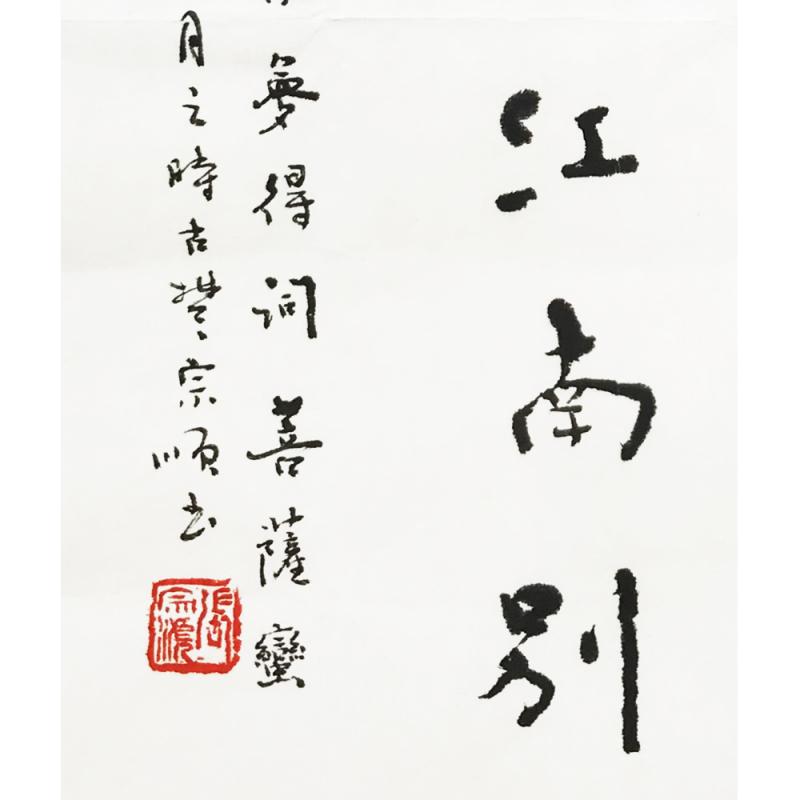 江南別
夢得詞菩薩蠻
月之時古楚宗順书
張宗順